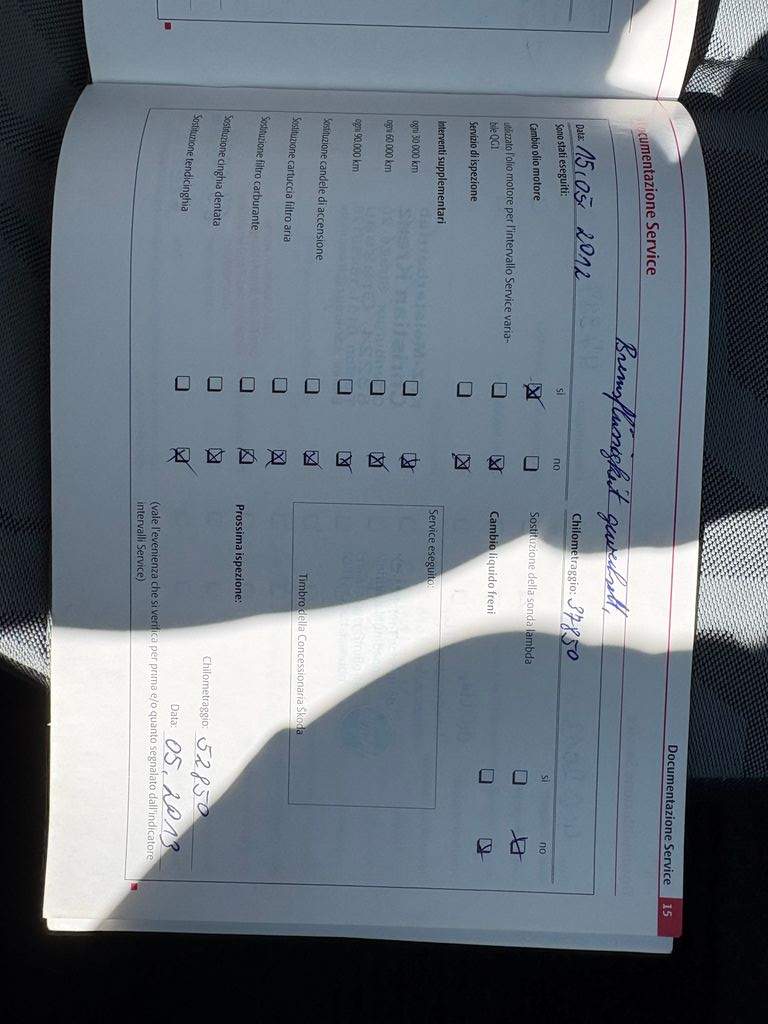 Documentazione Service
Documentazione Service 15
Bremsflüssigkeit gewechselt,
Data: 15.05 2012
Chilometraggio: 37850
Sono stati eseguiti:
si no
Cambio olio motore
utilizzato l'olio motore per l'intervallo Service varia-
bile QG1
Servizio di ispezione
Interventi supplementari
ogni 30 000 km
ogni 60 000 km
ogni 90.000 km
Sostituzione candele di accensione
Sostituzione cartuccia filtro aria
Sostituzione filtro carburante
Sostituzione cinghia dentata
Sostituzione tendicinghia
si no
Sostituzione della sonda lambda
Cambio liquido freni
Service eseguito:
Timbro della Concessionaria Škoda
Prossima ispezione:
Chilometraggio: 52850
Data: 05.2013
(vale l'evenienza che si verifica per prima e/o quanto segnalato dall'indicatore
intervalli Service)